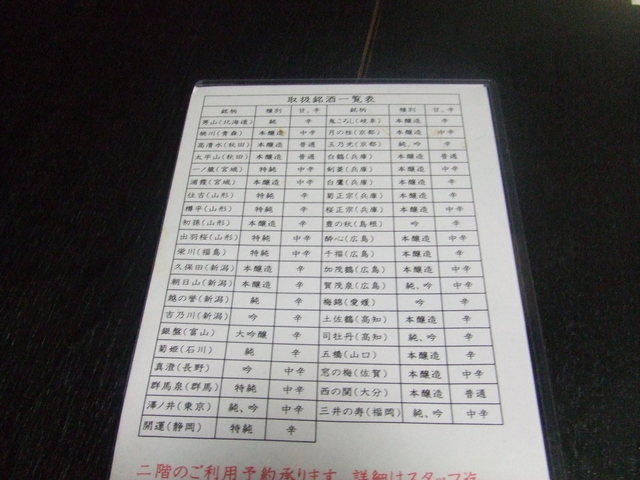 取扱銘酒一覧表
銘柄 種別 甘、辛 銘柄 種別 甘、辛
男山(北海道) 純 辛 鬼ころし(岐阜) 本醸造 辛
桃川(青森) 本醸造 中辛 月の桂(京都) 本醸造 中辛
高清水(秋田) 本醸造 普通 玉乃光(京都) 純、吟 辛
太平山(秋田) 本醸造 普通 白鶴(兵庫) 本醸造 普通
一ノ蔵(宮城) 特純 中辛 剣菱(兵庫) 本醸造 中辛
浦霞(宮城) 本醸造 中辛 白鷹(兵庫) 本醸造 辛
住吉(山形) 特純 辛 菊正宗(兵庫) 本醸造 辛
樽平(山形) 特純 辛 桜正宗(兵庫) 本醸造 中辛
初孫(山形) 本醸造 辛 豊の秋(島根) 吟 辛
出羽桜(山形) 特純 中辛 酔心(広島) 本醸造 中辛
栄川(福島) 特純 中辛 千福(広島) 本醸造 辛
久保田(新潟) 本醸造 辛 加茂鶴(広島) 本醸造 中辛
朝日山(新潟) 本醸造 辛 賀茂泉(広島) 純、吟 中辛
越の誉(新潟) 純 辛 梅錦(愛媛) 吟 辛
吉乃川(新潟) 吟 辛 土佐鶴(高知) 本醸造 辛
銀盤(富山) 大吟醸 辛 司牡丹(高知) 純、吟 辛
菊姫(石川) 純 辛 五橋(山口) 本醸造 辛
真澄(長野) 吟 中辛 窓の梅(佐賀) 本醸造 中辛
群馬泉(群馬) 特純 中辛 西の関(大分) 本醸造 普通
澤ノ井(東京) 純、吟 中辛 三井の寿(福岡) 純、吟 中辛
開運(静岡) 特純 辛
二階のご利用予約承ります。詳細はスタッフ迄